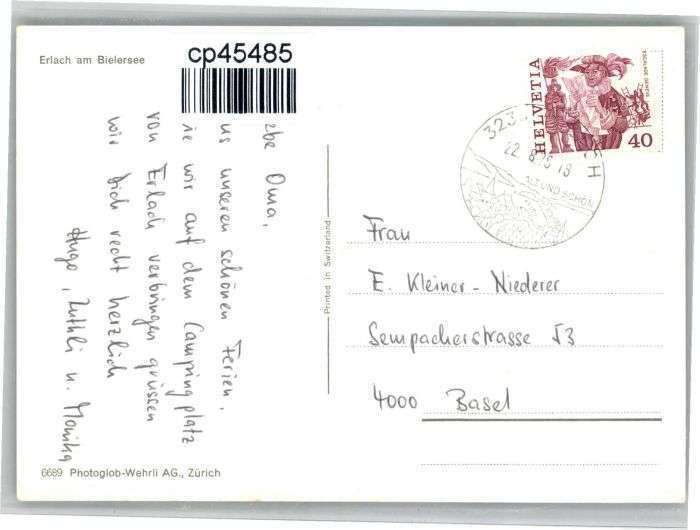 Erlach am Bielersee
cp45485
be Oma,
us unseren schönen Ferien,
ie wir auf dem Campingplatz
von Erlach verbringen grüssen
wir Dich recht herzlich
Hugo, u. Monika
6689 Photoglob-Wehrli AG., Zürich
Printed in Switzerland
HELVETIA
ESCALADE GENÈVE
40
323
22.8.
18
ALT UND SCHÖN
Frau
E. Kleiner-Niederer
Sempacherstrasse 53
4000 Basel